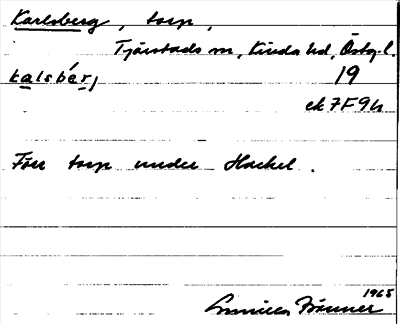 Karlsberg, torp,
Tjärstads sn, Kinda hd, Östergl.
kalsbärj 19
ek 7F9h
Förr torp under Hackel.
1965
Gunilla Brönner